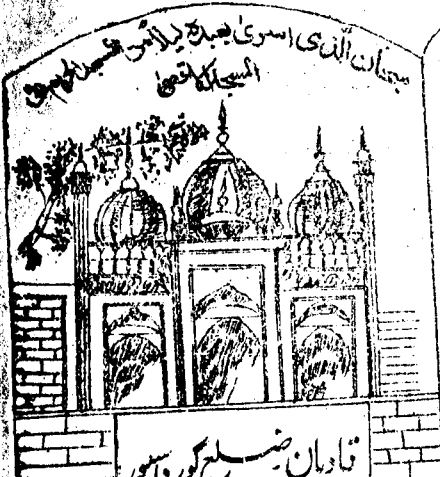 سبحان الذی اسریٰ بعبدہ لیلا من المسجد الحرام الی
المسجد الاقصیٰ
قادیان ضلع گورداسپور